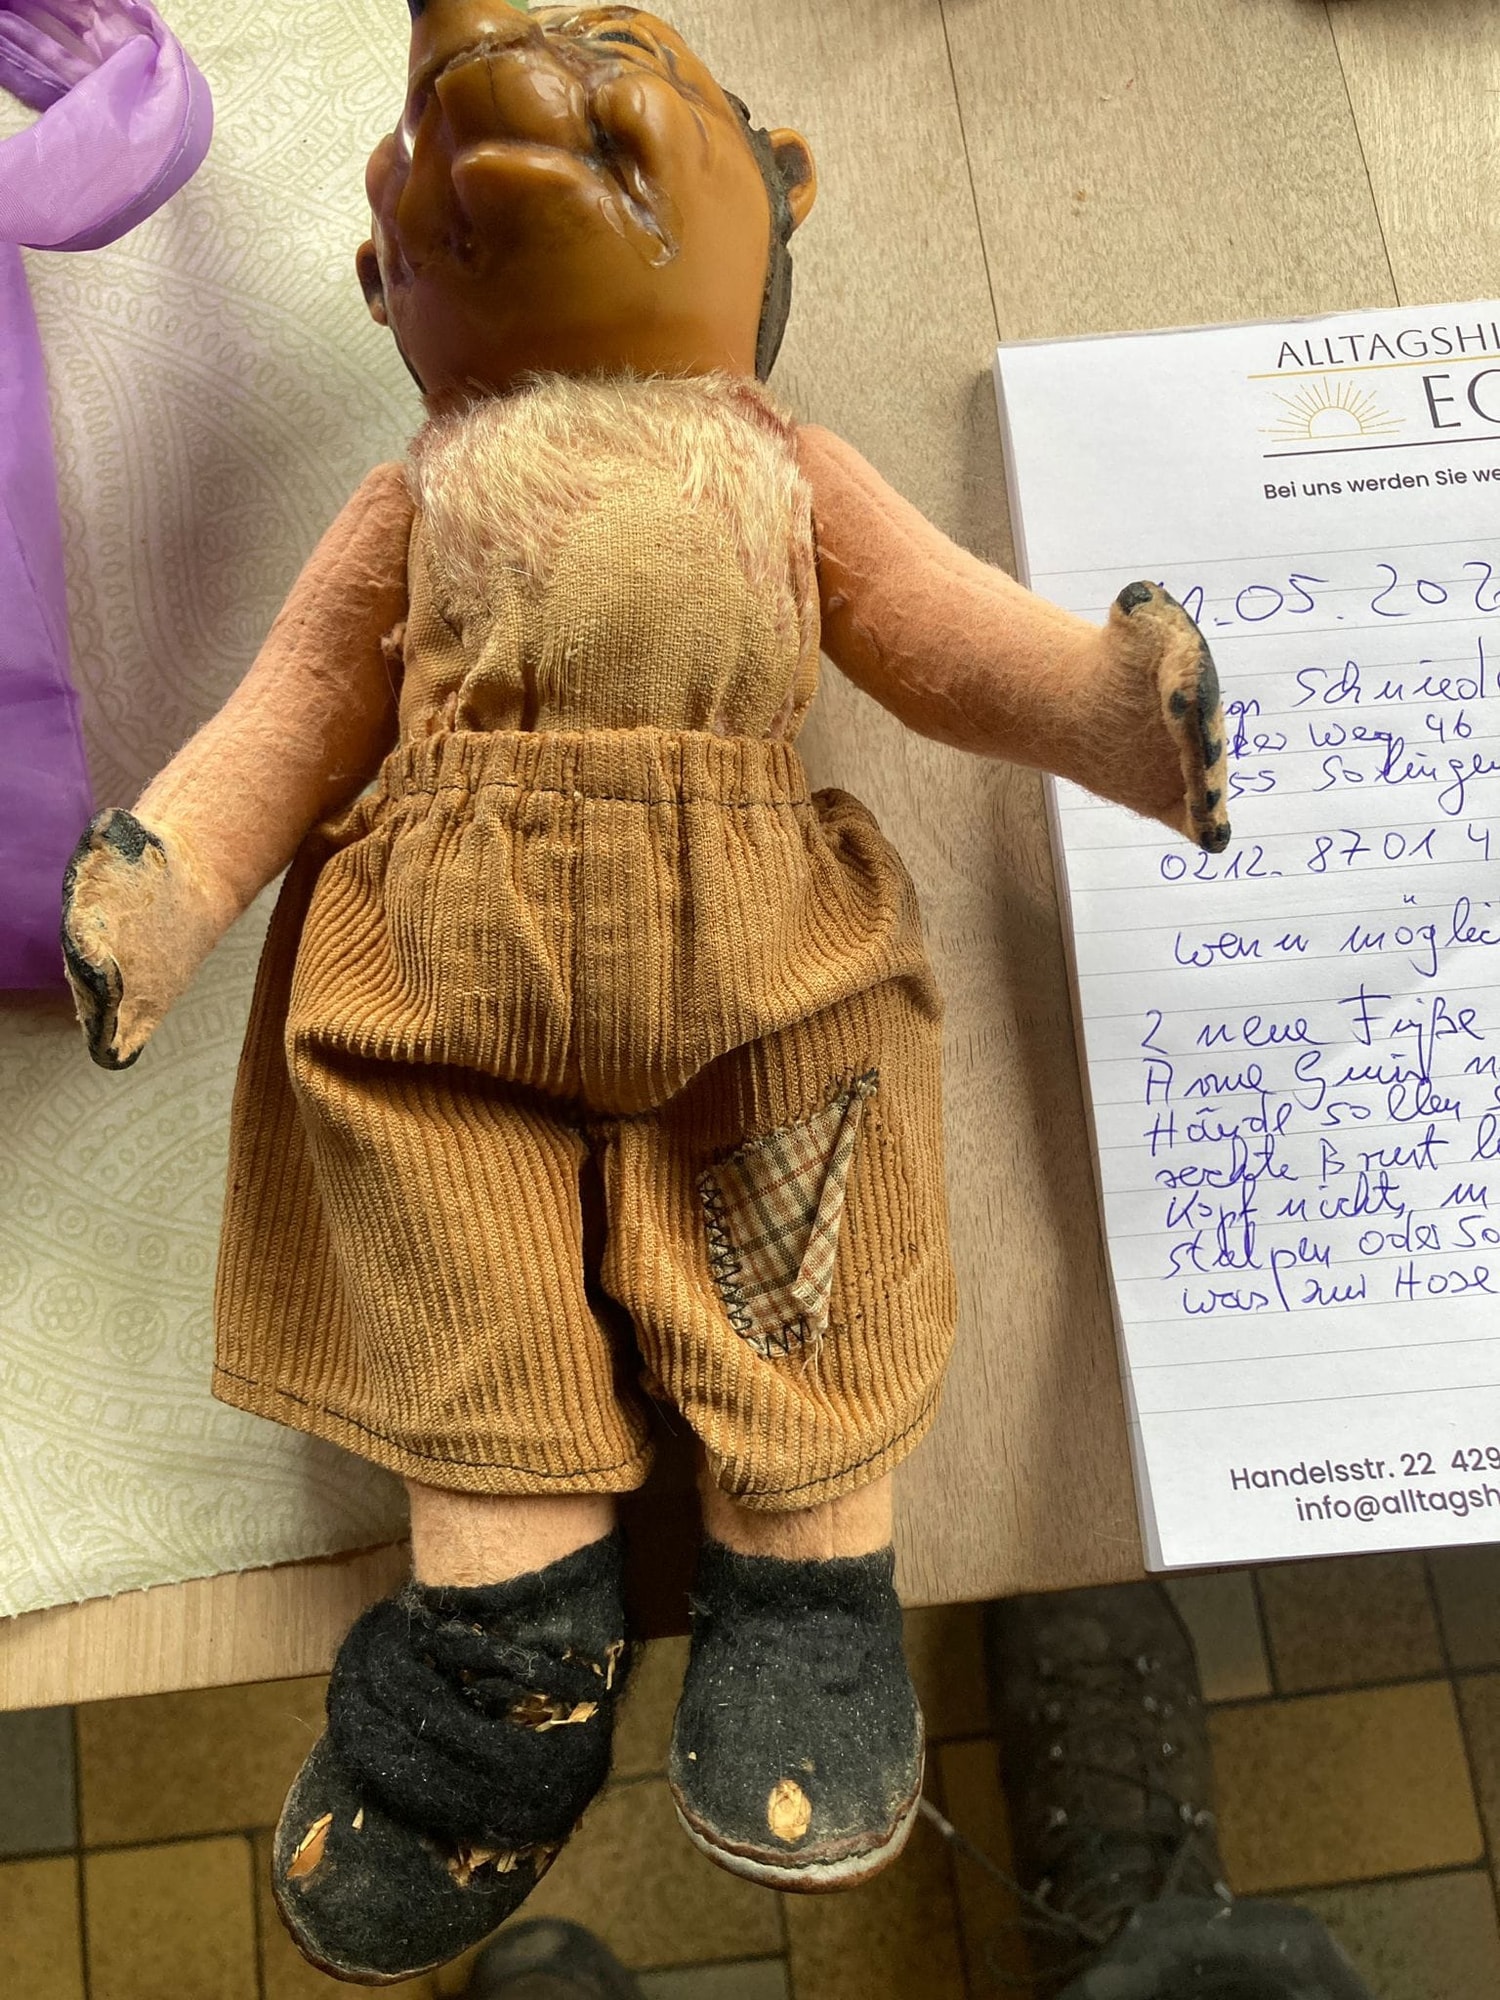 ALLTAGSHI
EC
Bei uns werden Sie we
1.05.202
Schmied
Weg 46
55 Solingen
0212. 8701 4
wenn möglic
2 neue Füße
Arme
Hände sollen
rechte Brust
Kopf nicht,
stülpen oder So
was zur Hose
Handelsstr. 22 429
info@alltagsh